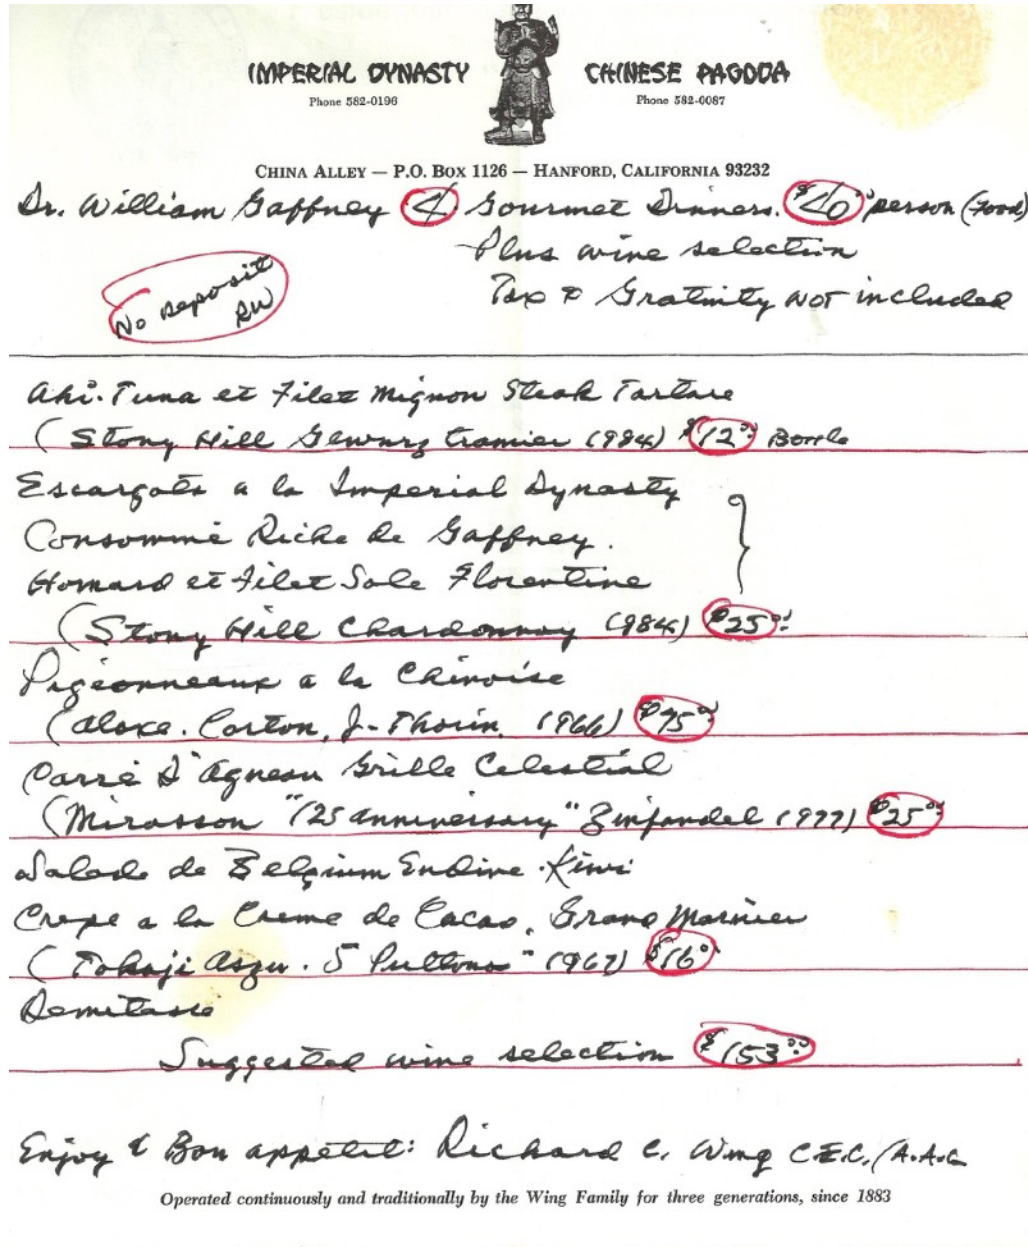 IMPERIAL DYNASTY CHINESE PAGODA
Phone 582-0196 Phone 582-0087
CHINA ALLEY — P.O. BOX 1126 — HANFORD, CALIFORNIA 93232
Dr. William Gaffney 4 Gourmet Dinners. $40.00 person (Food)
Plus wine selection
Tax & Gratuity NOT included
No Deposit
RW
Ahi-Tuna et Filet Mignon Steak Tartare
(Stony Hill Gewurztramier 1984) $12.00 Bottle
Escargots a la Imperial Dynasty
Consommé Riche de Gaffney.
Homard et Filet Sole Florentine
(Stony Hill Chardonnay 1984) $25.00
Pigeonneaux a la Chinoise
(Aloxe-Corton, J-Thorin 1966) $75.00
Carré D'Agneau Grille Celestial
(Mirasson "125 anniversary" Zinfandel 1977) $25.00
Salade de Belgium Endive-Kiwi
Crepe a la Creme de Cacao, Grand Marnier
(Tokaji Aszu. 5 Puttonos" 1967) $16.00
Demitasse
Suggested wine selection $153.00
Enjoy & Bon appétit: Richard C. Wing C.E.C./A.A.C
Operated continuously and traditionally by the Wing Family for three generations, since 1883